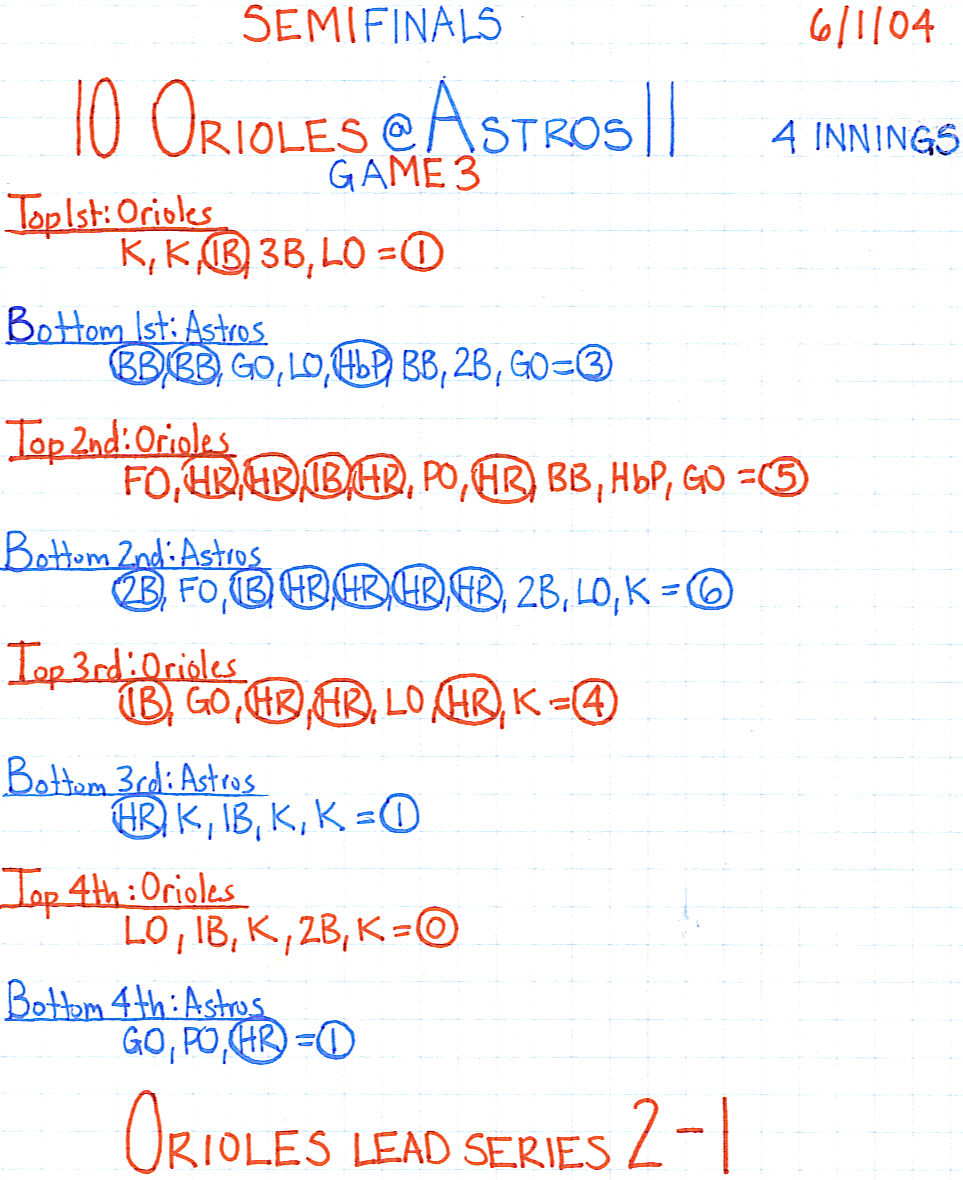 SEMIFINALS 6/1/04
10 ORIOLES @ ASTROS 11 4 INNINGS
GAME 3
Top 1st: Orioles
K, K, 1B, 3B, LO = 1
Bottom 1st: Astros
BB, BB, GO, LO, HbP, BB, 2B, GO = 3
Top 2nd: Orioles
FO, HR, HR, 1B, HR, PO, HR, BB, HbP, GO = 5
Bottom 2nd: Astros
2B, FO, 1B, HR, HR, HR, HR, 2B, LO, K = 6
Top 3rd: Orioles
1B, GO, HR, HR, LO, HR, K = 4
Bottom 3rd: Astros
HR, K, 1B, K, K = 1
Top 4th: Orioles
LO, 1B, K, 2B, K = 0
Bottom 4th: Astros
GO, PO, HR = 1
ORIOLES LEAD SERIES 2-1